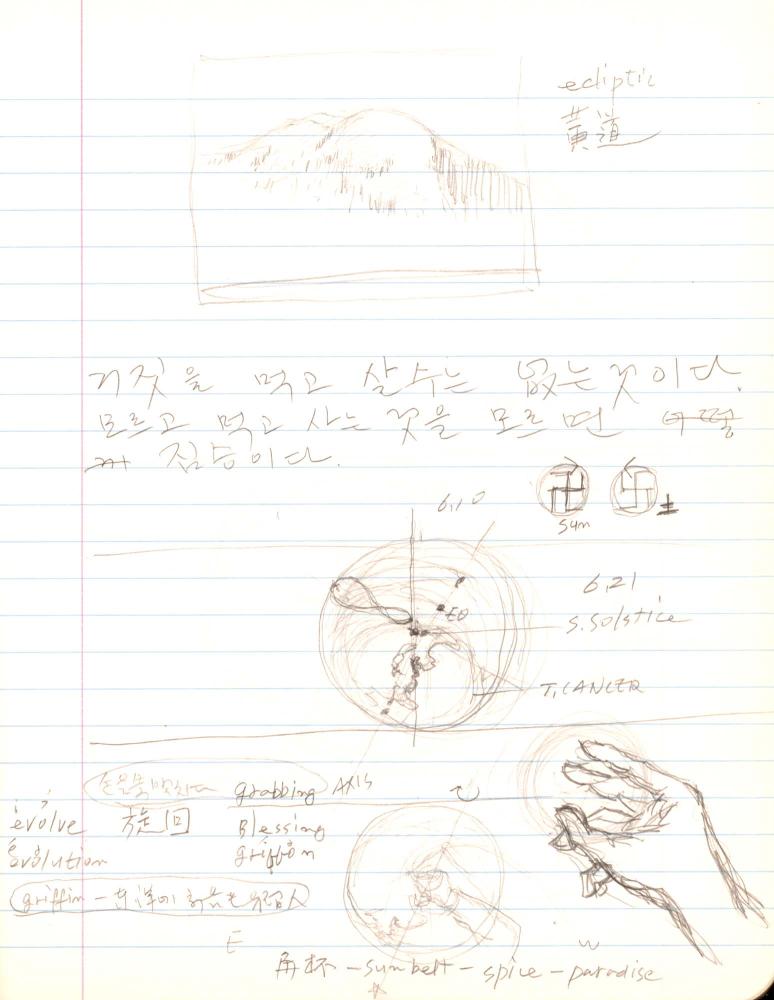 ecliptic
黃道
거짓을 먹고 살수는 없는 것이다.
모르고 먹고 사는 것을 모르면 어떻
짐승이다.
卍 卐
sun
6,10
6,21
EQ
S.SOLSTICE
T.CANCER
grabbing AXIS
evolve 旋回 Blessing
evolution griffon
griffin -
E W
角杯 - sunbelt - spice - paradise